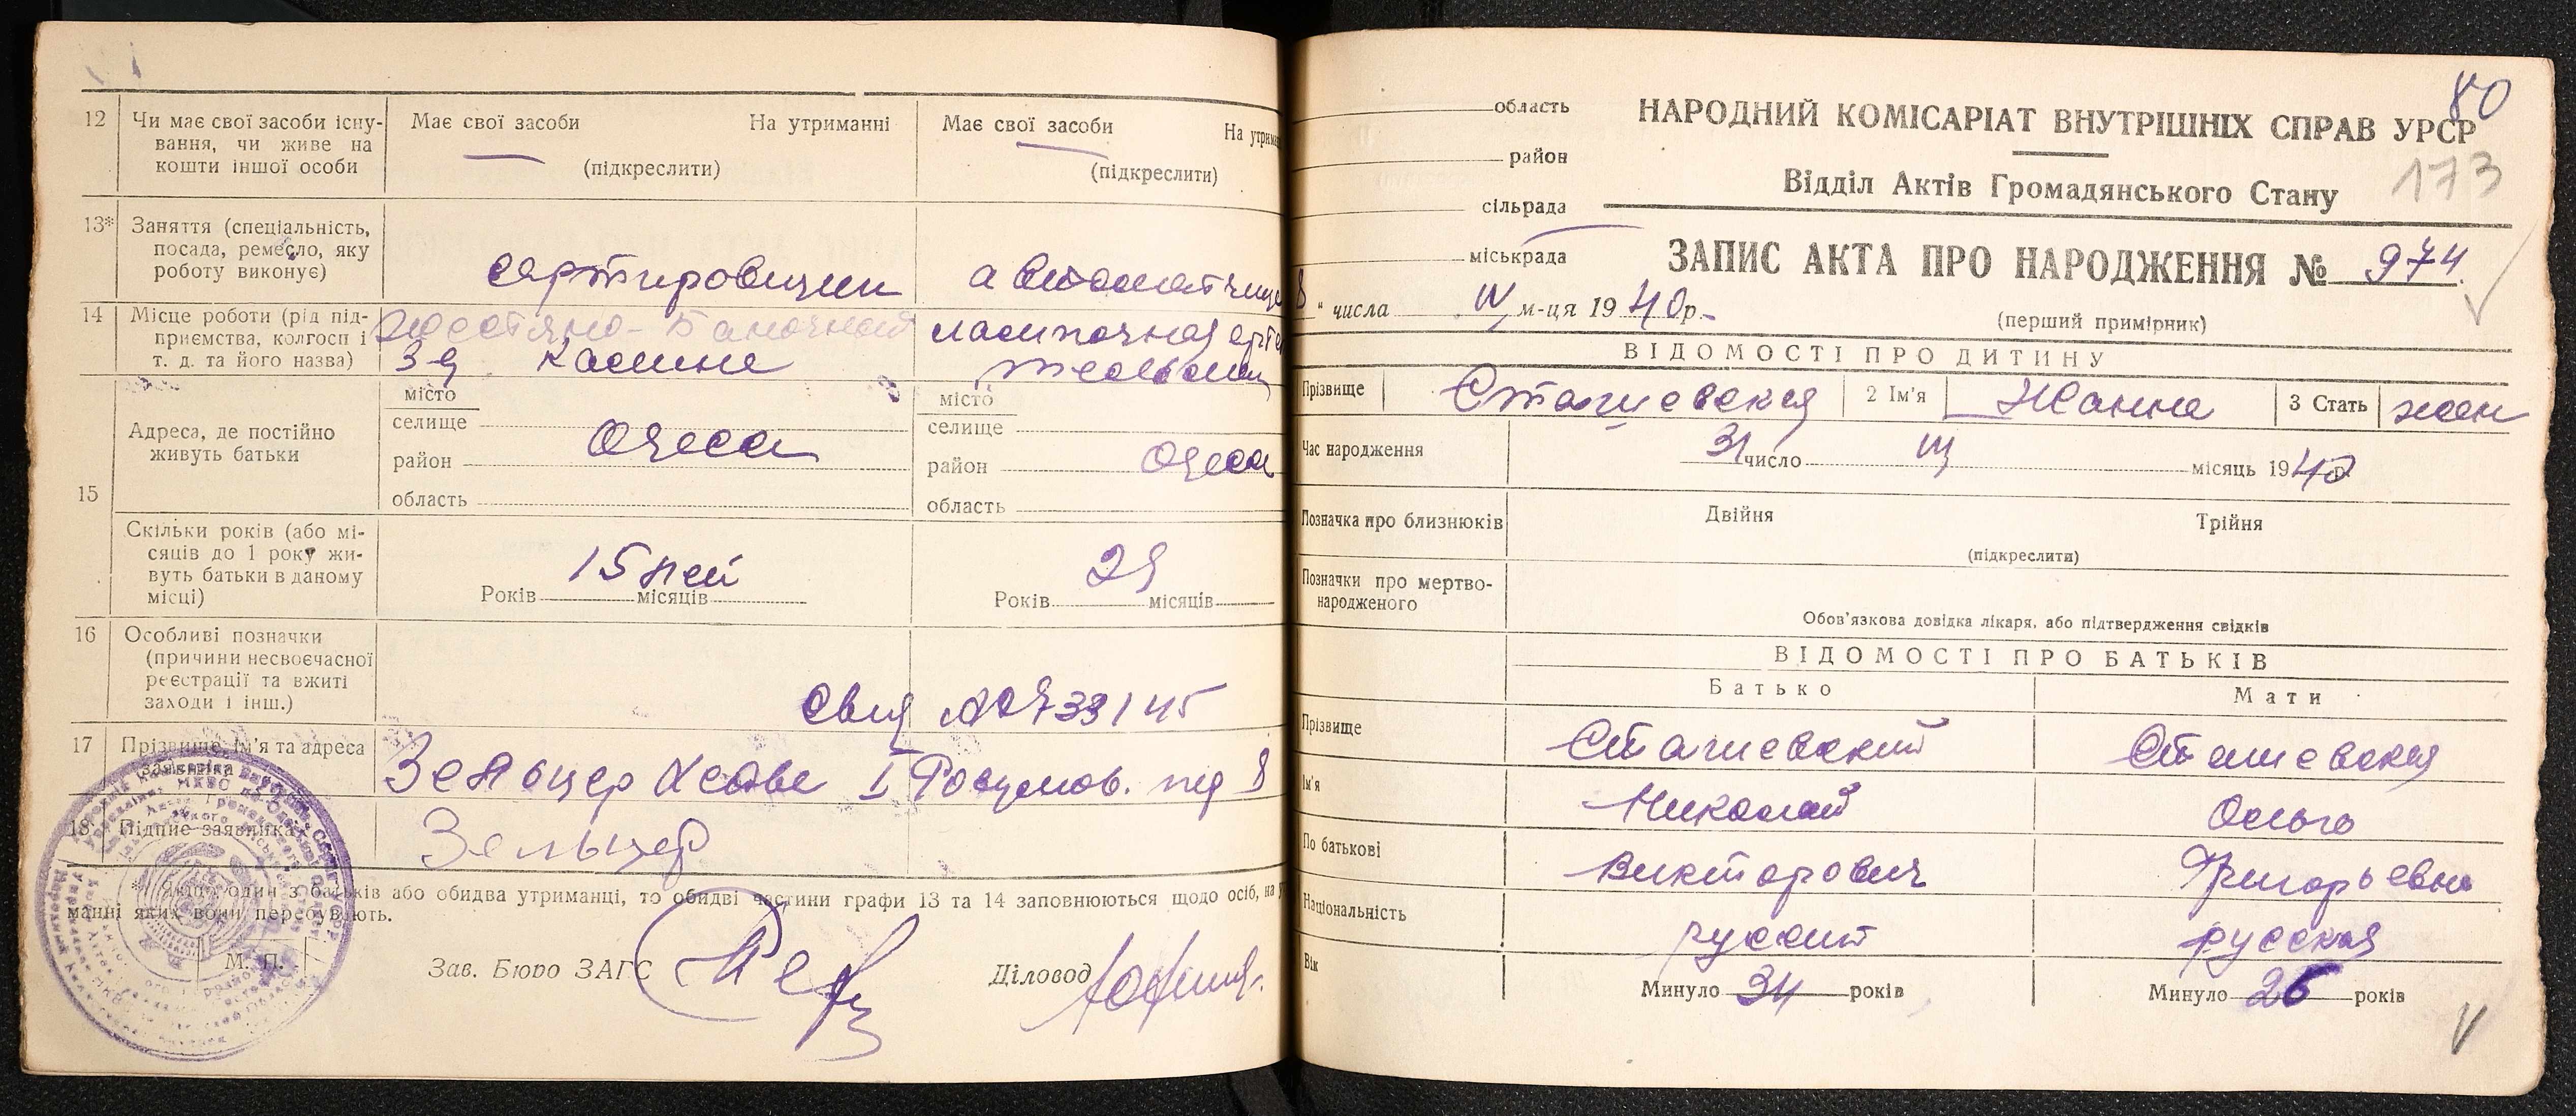 12 Чи має свої засоби існу-
вання, чи живе на
кошти іншої особи
Має свої засоби На утриманні
(підкреслити)
Має свої засоби
(підкреслити)
13* Заняття (спеціальність,
посада, ремесло, яку
роботу виконує)
сортировщик
14 Місце роботи (рід під-
приємства, колгосп і
т. д. та його назва)
Жестяно-баночный
Адреса, де постійно
живуть батьки
місто
селище
Одесса
район
область
місто
селище
Одесса
район
область
15
Скільки років (або мі-
сяців до 1 року жи-
вуть батьки в даному
місці)
15 лет
Років місяців
Років місяців
16 Особливі позначки
(причини несвоєчасної
реєстрації та вжиті
заходи і інш.)
17 Прізвище, ім'я та адреса
заявника
Зельцер
18 Підпис заявника
Зельцер
* Якщо один з батьків або обидва утриманці, то обидві частини графи 13 та 14 заповнюються щодо осіб, на
манні яких вони перебувають.
М. П.
Зав. Бюро ЗАГС
Діловод
80
область
район
сільрада
міськрада
НАРОДНИЙ КОМІСАРІАТ ВНУТРІШНІХ СПРАВ УРСР
Відділ Актів Громадянського Стану
173
ЗАПИС АКТА ПРО НАРОДЖЕННЯ № 974
8 " числа IV м-ця 1940р.
(перший примірник)
ВІДОМОСТІ ПРО ДИТИНУ
Прізвище Сташевская 2 Ім'я Жанна 3 Стать жен
Час народження 31 число III місяць 1940 р.
Позначка про близнюків Двійня Трійня
(підкреслити)
Позначки про мертво-
народженого
Обов'язкова довідка лікаря, або підтвердження свідків
ВІДОМОСТІ ПРО БАТЬКІВ
Батько Мати
Прізвище Сташевский Сташевская
Ім'я Николай Ольга
По батькові Викторович Григорьевна
Національність русский русская
Вік Минуло 34 років Минуло 26 років